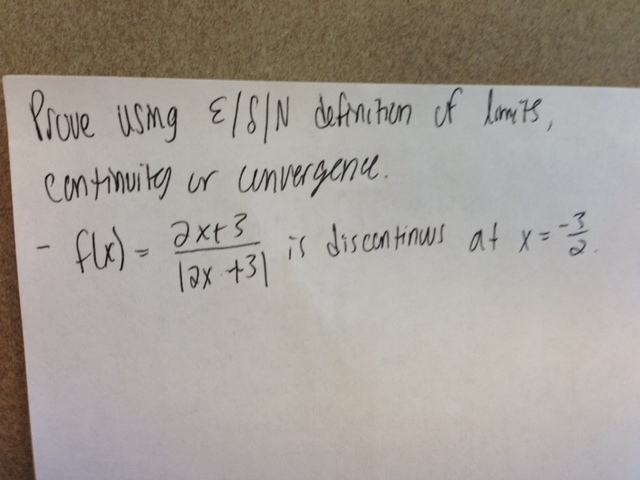 Prove using ε/δ/N definition of limits,
continuity or convergence.
- f(x) = 2x+3 / |2x+3| is discontinuous at x = -3/2.